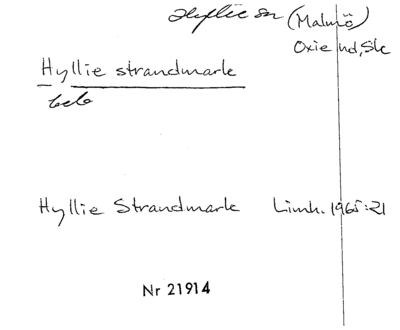 Hyllie sn (Malmö)
Oxie hd, Sk
Hyllie strandmark
beb
Hyllie Strandmark Limh. 1965:21
Nr 21914